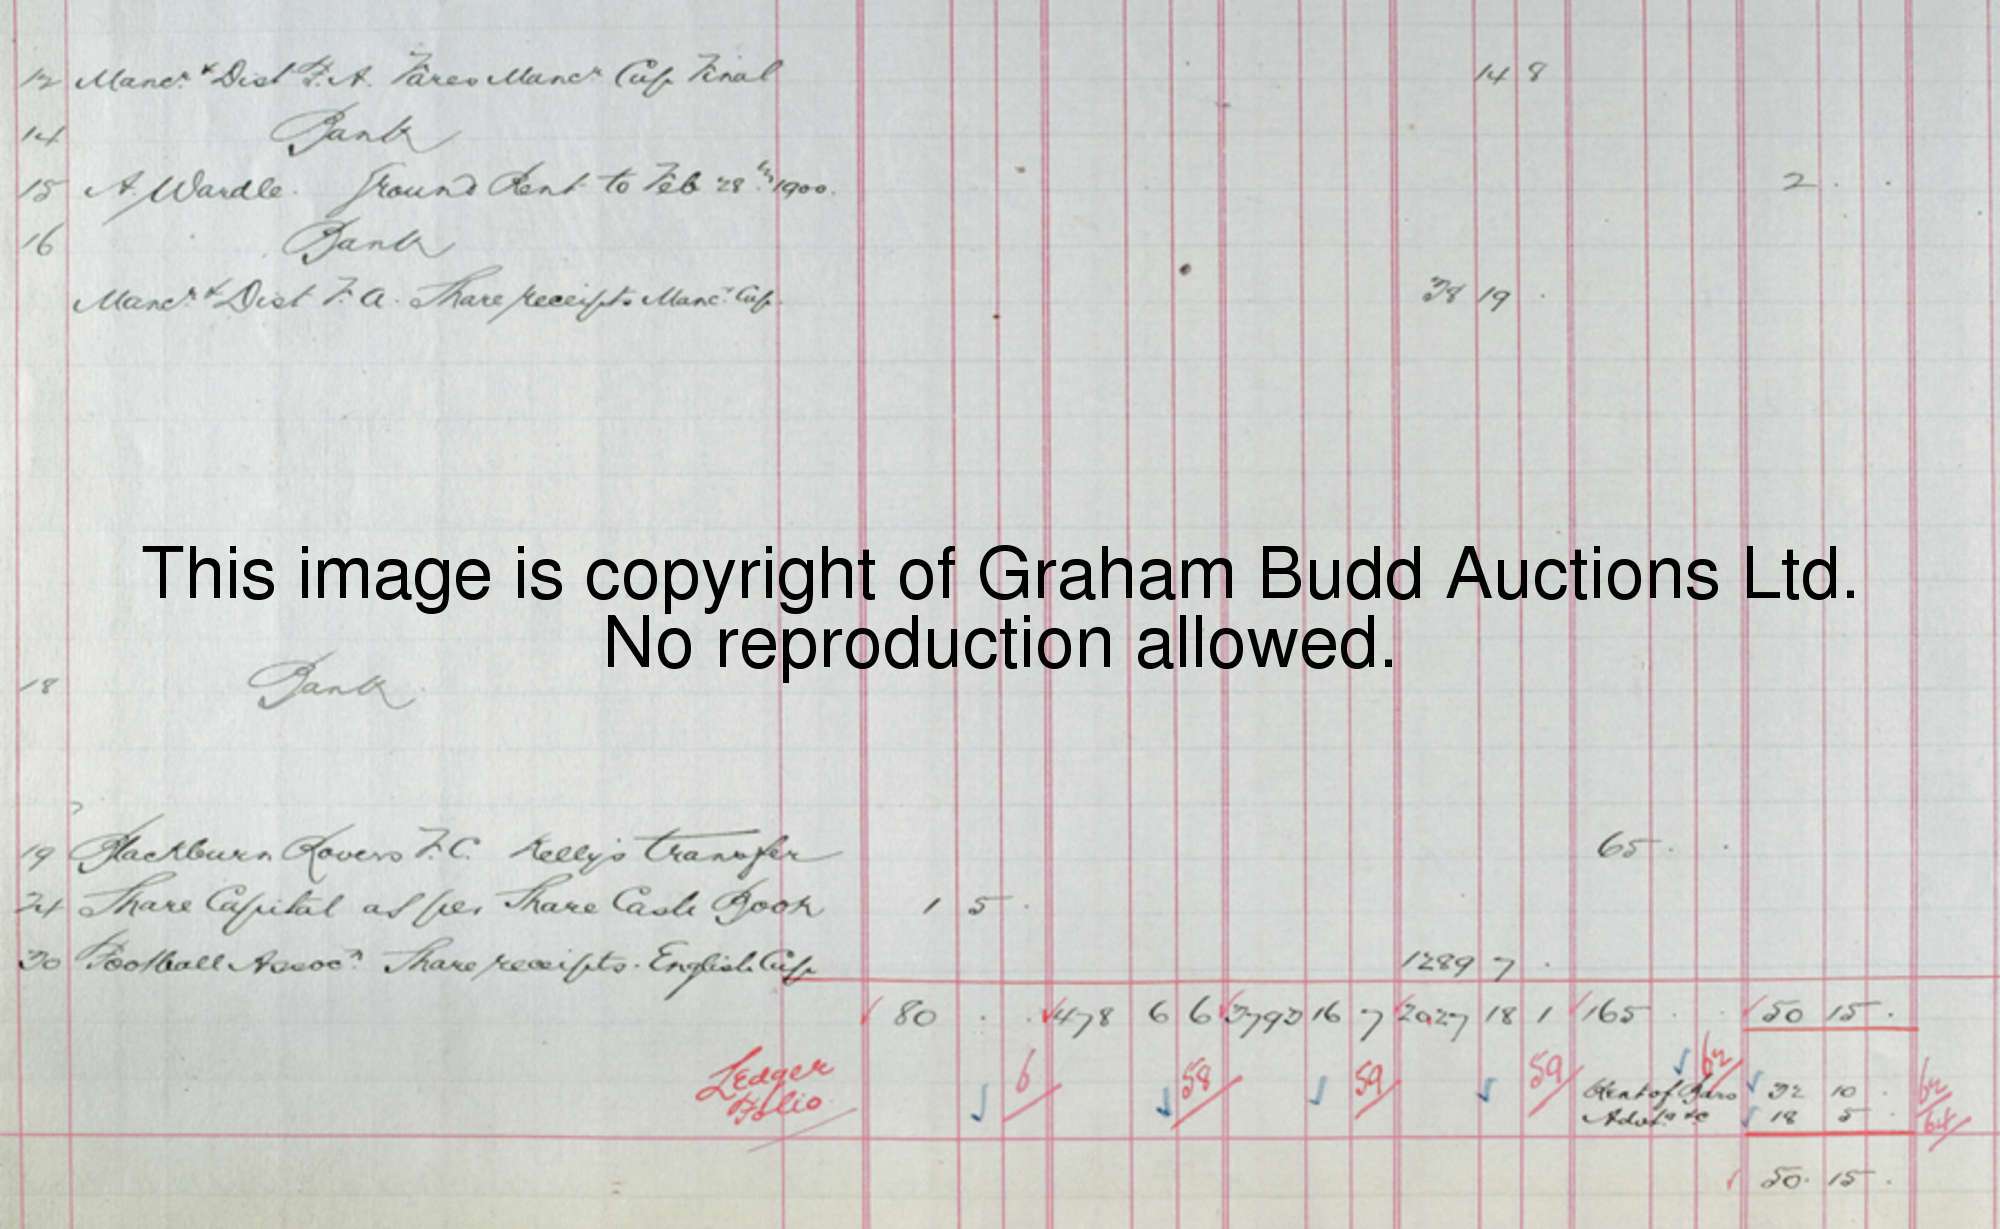 12 Mancr & Dist F.A. Fares Mancr Cup Final 14 8
14 Bank
15 A. Wardle. Ground Rent to Feb 28th 1900. 2 . .
16 Bank
Mancr & Dist F.A. Share receipts Mancr Cup. 38 19 .
This image is copyright of Graham Budd Auctions Ltd.
No reproduction allowed.
18 Bank
19 Blackburn Rovers F.C. Kelly's transfer 65 . .
24 Share Capital as per Share Cash Book 1 5 .
30 Football Assocn Share receipts. English Cup 1289 7 .
80 . . 478 6 6 3793 16 7 2027 18 1 165 . . 50 15 .
Ledger Folio 6 58 59 59 62
Rent of Bars 32 10 . 62
Advts &c 18 5 . 64
50. 15 .